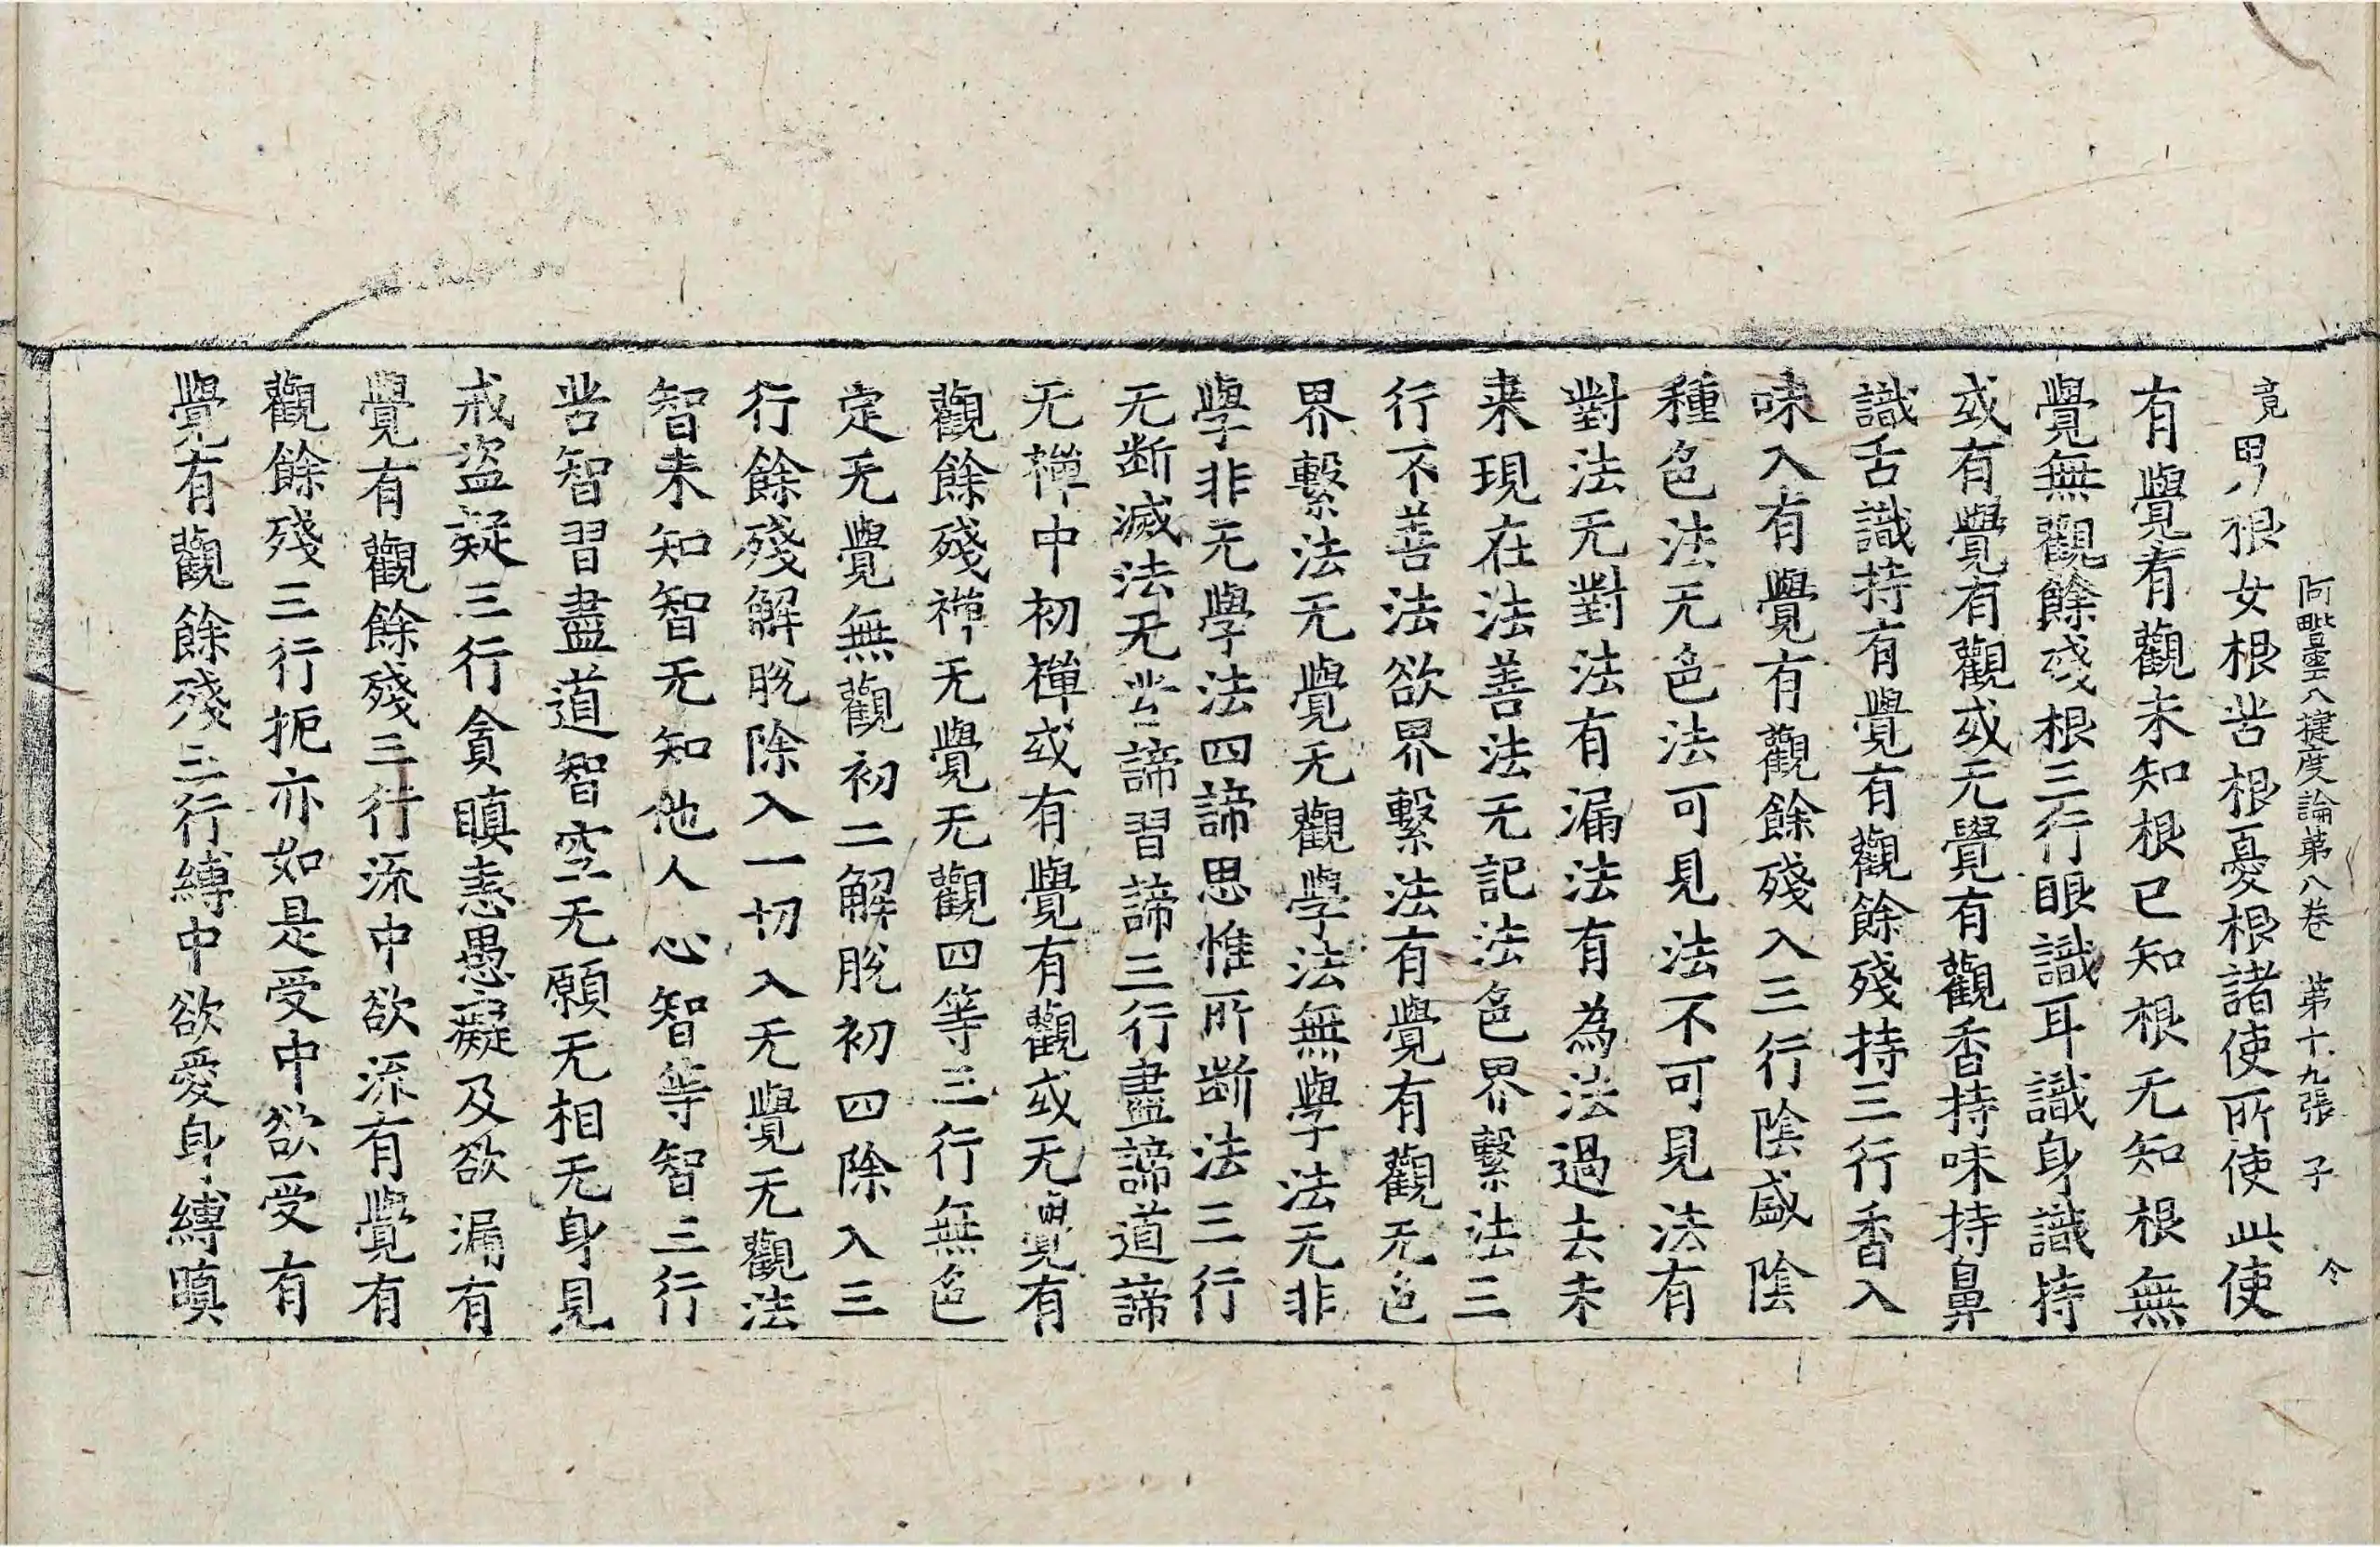 阿毗曇八揵度論第八卷 第十九張 子 令
竟男根女根苦根憂根諸使所使此使
有覺有觀未知根已知根无知根無
覺無觀餘殘根三行眼識耳識身識持
或有覺有觀或无覺有觀香持味持鼻
識舌識持有覺有觀餘殘持三行香入
味入有覺有觀餘殘入三行陰盛陰
種色法无色法可見法不可見法有
對法无對法有漏法有為法過去未
来現在法善法无記法色界繫法三
行不善法欲界繫法有覺有觀无色
界繫法无覺无觀學法無學法无非
學非无學法四諦思惟所斷法三行
无斷滅法无苦諦習諦三行盡諦道諦
无禪中初禪或有覺有觀或无覺有
觀餘殘禪无覺无觀四等三行無色
定无覺無觀初二解脫初四除入三
行餘殘解脫除入一切入无覺无觀法
智未知智无知他人心智等智三行
苦智習盡道智空无願无相无身見
戒盜疑三行貪瞋恚愚癡及欲漏有
覺有觀餘殘三行流中欲流有覺有
觀餘殘三行扼亦如是受中欲受有
覺有觀餘殘三行縛中欲愛身縛瞋